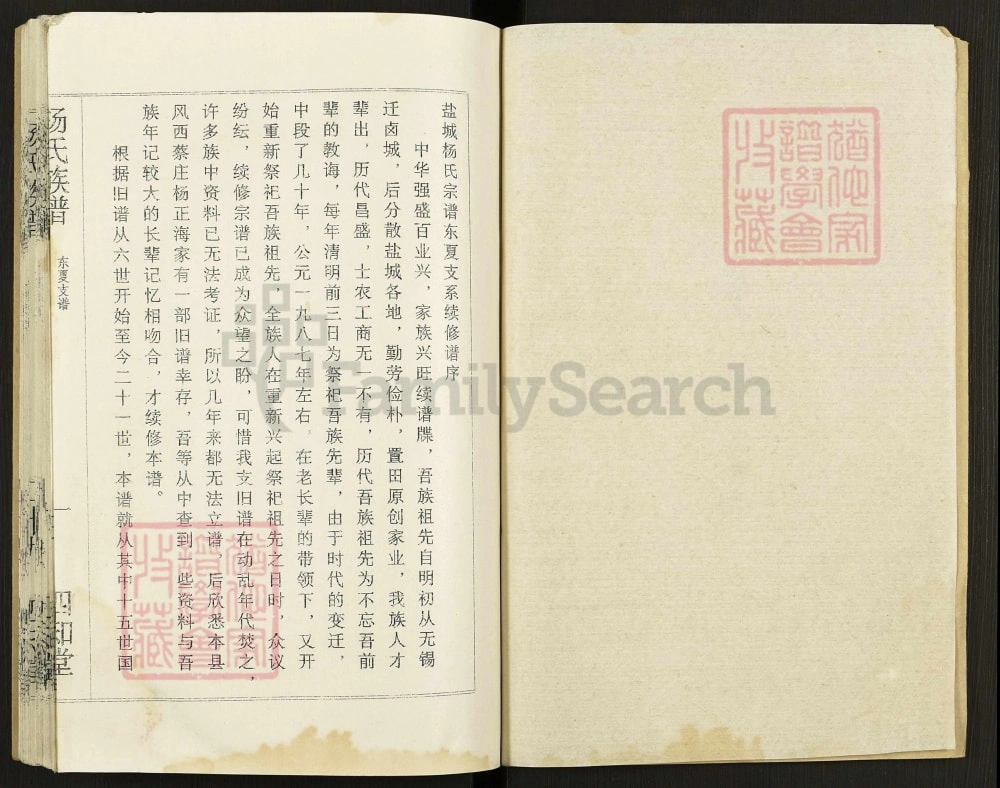 盐城杨氏宗谱东夏支系续修谱序
中华强盛百业兴，家族兴旺续谱牒，吾族祖先自明初从无锡
迁卤城，后分散盐城各地，勤劳俭朴，置田原创家业，我族人才
辈出，历代昌盛，士农工商无一不有，历代吾族祖先为不忘吾前
辈的教诲，每年清明前三日为祭祀吾族先辈，由于时代的变迁，
中段了几十年，公元一九八七年左右，在老长辈的带领下，又开
始重新祭祀吾族祖先，全族人在重新兴起祭祀祖先之日时，众议
纷纭，续修宗谱已成为众望之盼，可惜我支旧谱在动乱年代焚之，
许多族中资料已无法考证，所以几年来都无法立谱，后欣悉本县
风西蔡庄杨正海家有一部旧谱幸存，吾等从中查到一些资料与吾
族年记较大的长辈记忆相吻合，才续修本谱。
根据旧谱从六世开始至今二十一世，本谱就从其中十五世国
杨氏族谱
东夏支谱
一
四知堂
FamilySearch
譜學會
收藏